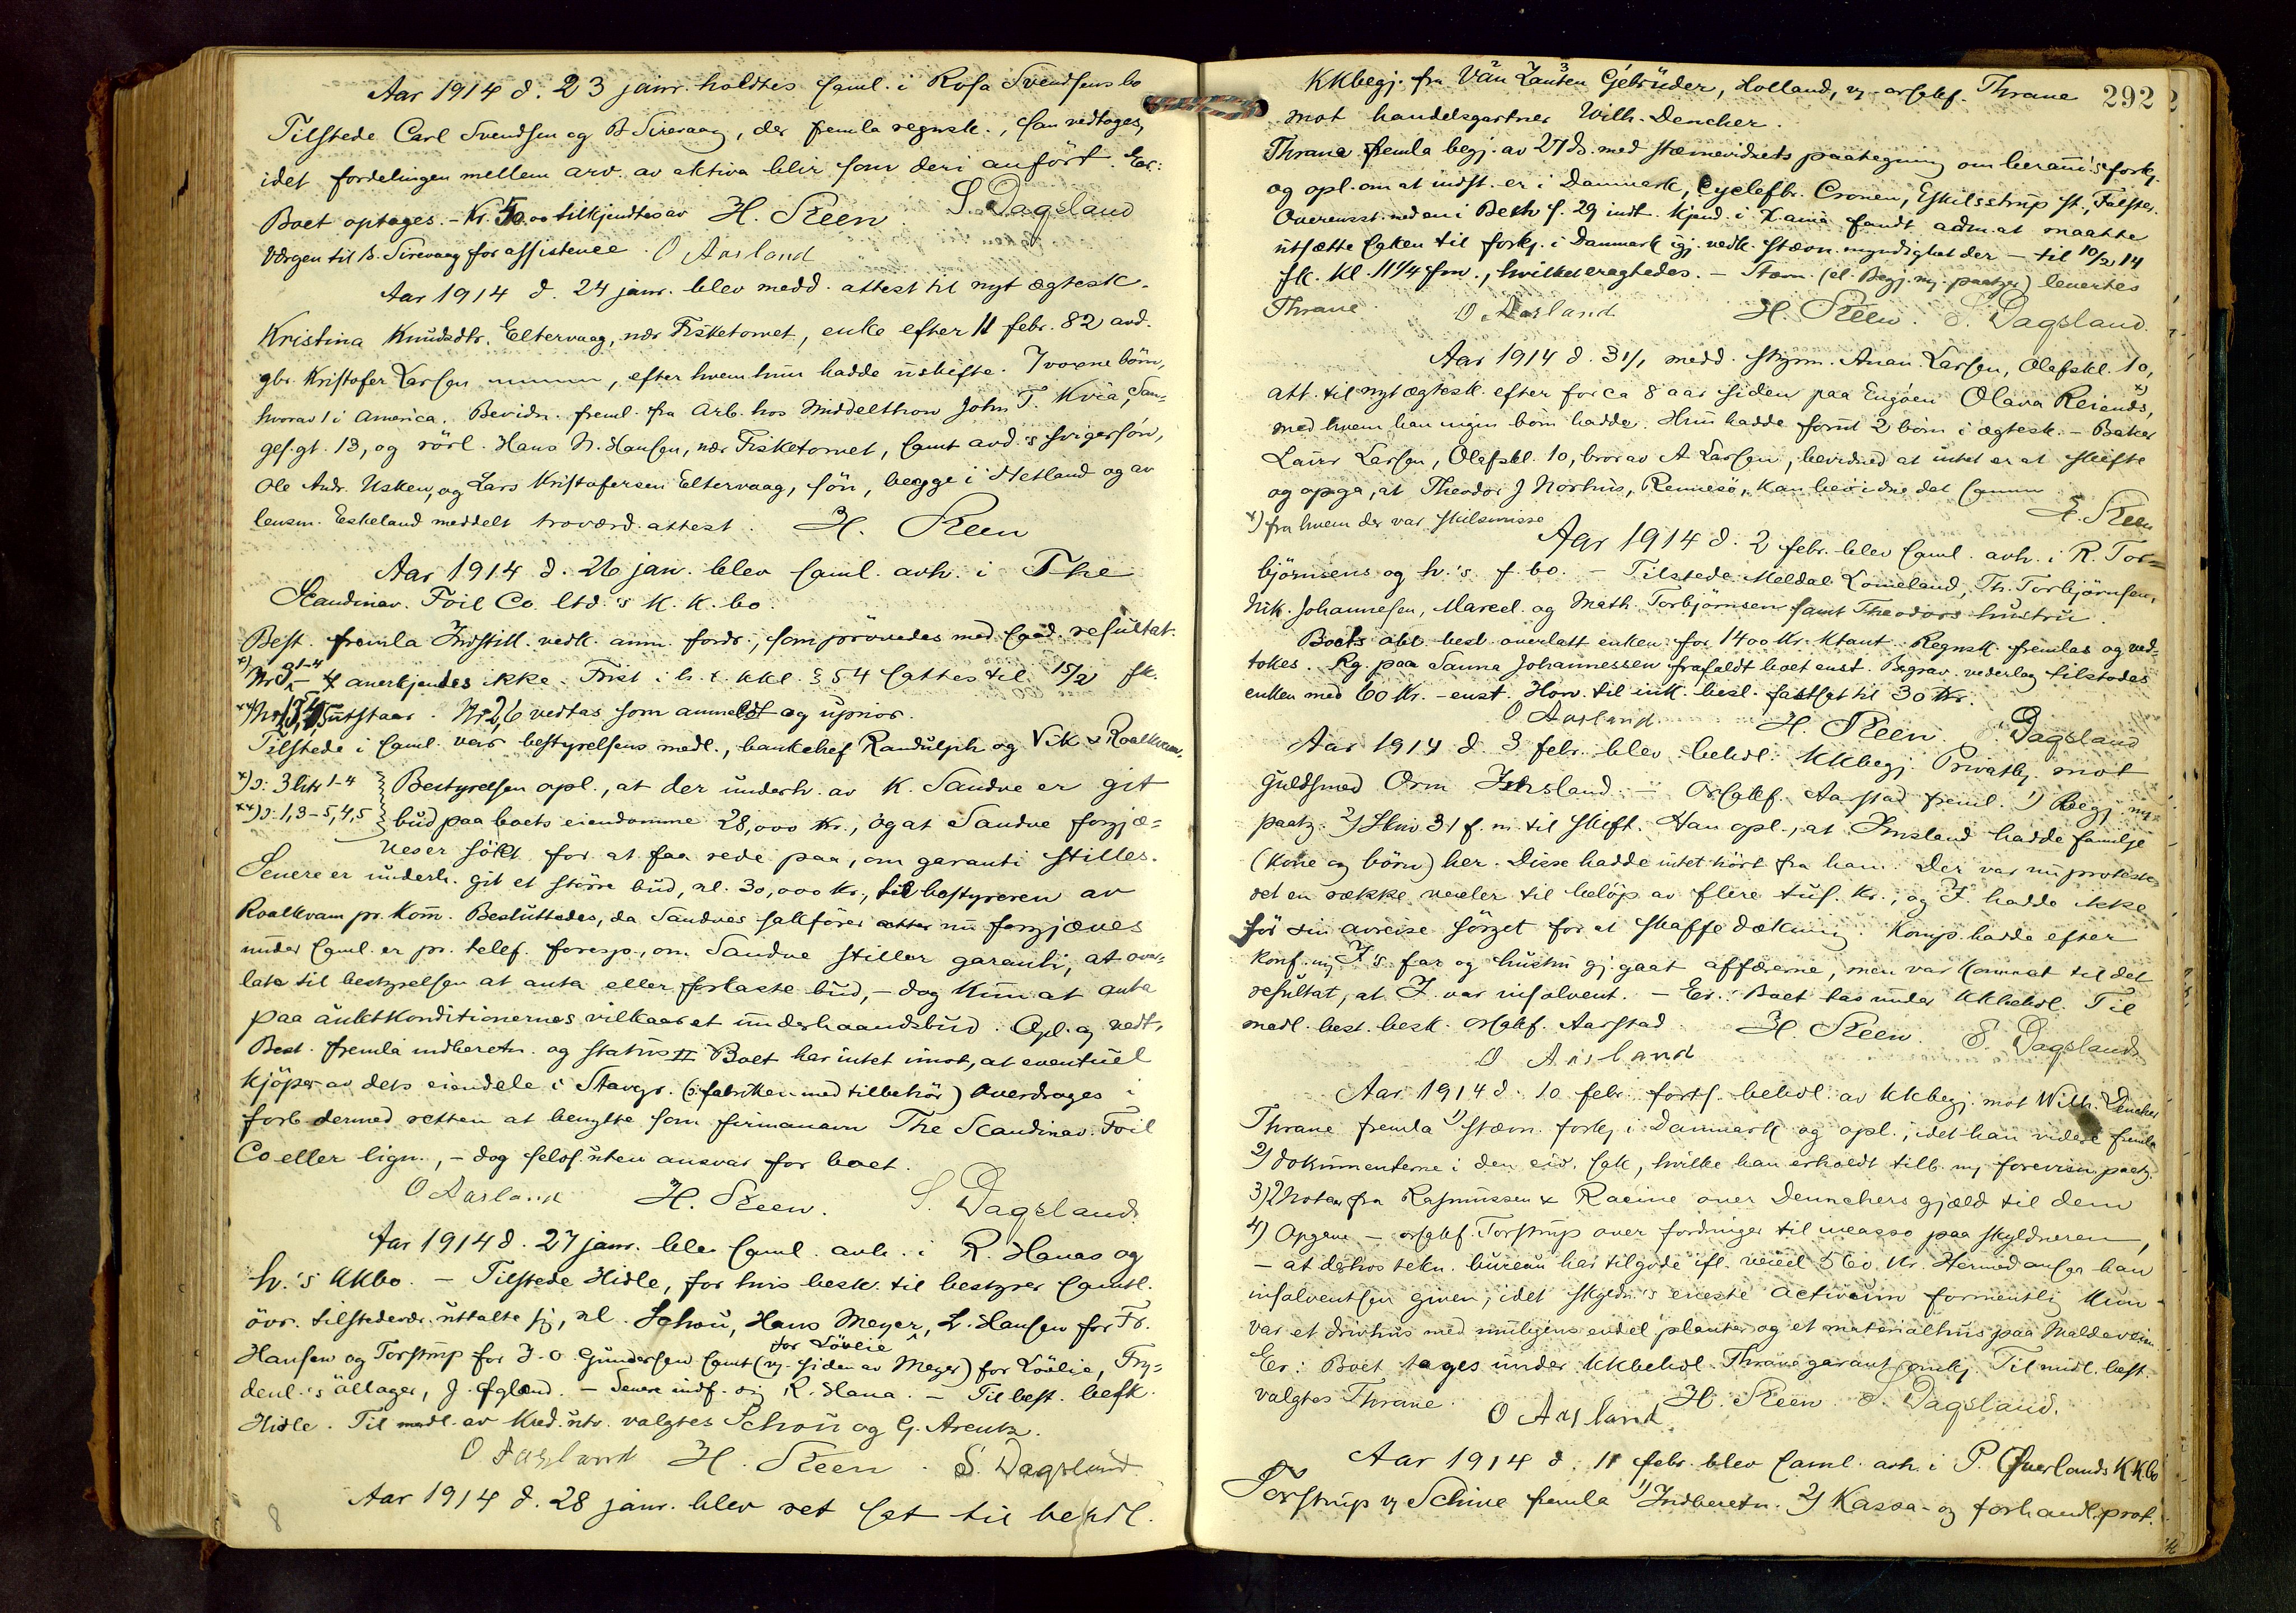 Aar 1914 d. 23 janr. holdtes saml. i Rosa Svendsens bo
Tilstede Carl Svendsen og B Sirevaag, der fremla regnsk., som vedtoges,
idet fordelingen mellem arv. av aktiva blir som deri anført. Er:
Boet optages. - Kr. 50.00 tilkjendtes av H. Steen S. Dagsland
Værgen til B. Sirevaag for assistence. O Aarland
Aar 1914 d. 24 janr. blev medd. attest til nyt ægtesk.
Kristina Knudsdtr. Eltervaag, nær Fisketorvet, enke efter 11 febr. 82 avd.
gbr. Kristofer Larsen, efter hvem hun hadde uskifte. 7 voxne børn,
hvorav 1 i America. Bevidn. freml. fra Arb. hos Middelthon John T. Kvia, San-
gesgt. 13, og rörl. Hans N. Hansen, nær Fisketorvet, samt avd.'s svigersøn,
Ole Andr. Usken, og Lars Kristofersen Eltervaag, søn, begge i Hetland og av
lensm. Eskeland meddelt troværd. attest. H. Steen
Aar 1914 d. 26 jan. blev saml. avh. i The
Scandinav. Foil Co. ltd.'s K.K.bo.
Best. fremla Indstill. vedk. anm. fordr., som prøvedes med saad. resultat.
x) Nr 3 1-4 anerkjendes ikke. Frist i h. t. kkl. § 54 sattes til 15/2 fk.
xx) Nr utstaar. Nr 2, 6 vedtas som anmeldt og uprior.
Tilstede i saml. var bestyrelsens medl., bankchef Randulph og Vik & Roalkvam.
x) ɔ: 3 litr 1-4 Bestyrelsen opl., at der underh. av K. Sandve er git
xx) ɔ: 1, 3-5, 4, 5 bud paa boets eiendomme 28,000 Kr., og at Sandve forgjæ-
ves er søkt for at faa rede paa, om garanti stilles.
Senere er underh. git et større bud, nl. 30,000 Kr., til bestyreren av
Roalkvam pr. Kom. Besluttedes, da Sandves sakfører nu forgjæves
under saml. er pr. telef. foresp., om Sandve stiller garanti, at over-
lata til bestyrelsen at anta eller forkaste bud, - dog kun at anta
paa auktkonditionernes vilkaar et underhaandsbud. Opl. og vedt.
Best. fremla indberetn. og status II Boet har intet imot, at eventuel
kjøper av dets eiendele i Stavgr. (ɔ: fabriken med tilbehør) overdrages i
forb. dermed retten at benytte som firmanavn The Scandinav. Foil
Co eller lign., - dog selvf. uten ansvar for boet.
O Aarland H. Steen. S. Dagsland
Aar 1914 d. 27 janr. blev saml. avh. i R. Hanas og
h.'s KKbo. - Tilstede Hidle, for hvis besk. til bestyrer samtl.
övr. tilstedevær. uttalte sig, nl. Schou, Hans Meyer, L. Hansen for Fr.
for Løvlie
Hansen og Torstrup for J. O. Gundersen samt (v. siden av Meyer) for Løvlie, Fry-
denl.'s öllager, J. Øglænd. - Senere indf. sig R. Hana. - Til best. besk.
Hidle. Til medl. av Kred.utv. valgtes Schou og G. Arentz.
O Aarland H. Steen. S. Dagsland
Aar 1914 d. 28 janr. blev ret sat til behdl.
8
292
KKbegj. fra Van Zanten Gebrüder, Holland, v. orsakf. Thrane
mot handelsgartner Wilh. Dencher.
Thrane fremla begj. av 27 ds. med stævnevidnets paategning om beram.'s forkj.
og opl. om at indst. er i Danmark, Cyclefbr. Cronen, Eskilsstrup st., Falster.
Overensst. med en i Besk s. 29 indt. kjend. i fandt adm at maatte
utsætte saken til forkj. i Danmark gj. vedk. stævn. myndigheder - til 10/2 14
fk. kl. 11 1/4 fm., hvilket eragtedes. - Stævn. (el. Begj. m. paatgn.) levertes
Thrane O Aarland H. Steen. S. Dagsland.
Aar 1914 d. 31/1 medd. styrm. Anan. Larsen, Olafskl. 10,
att. til nyt ægtesk. efter for ca 8 aar siden paa Engøen Olava Reiends, x)
med hvem han ingen børn hadde. Hun hadde forut 2 børn i ægtesk. - Baker
Laurs Larsen, Olafskl. 10, bror av A Larsen, bevidned at intet er at skifte
og opga, at Theodor J Norhus, Rennesø, kan bevidne det samme
x) fra hvem der var skilsmisse H. Steen
Aar 1914 d. 2 febr. blev saml. avh. i R. Tor-
bjørnsens og h.'s f. bo. - Tilstede Meldal Lomeland, Th. Torbjørnsen,
Nik. Johannesen, Marcel. og Math. Torbjørnsen samt Theodors hustru.
Boets akt. besl. overlatt enken for 1400 Kr. ktant. Regnsk. fremlas og ved-
tokes. Rg. paa Sanna Johannessen frafaldt boet enst. Begrav. vederlag tilstodes
enken med 60 Kr. - enst. Hon. til ink. besl. fastsat til 30 Kr.
O Aarland H. Steen S. Dagsland
Aar 1914 d. 3 febr. blev behdl. KKbegj. Privatbk. mot
guldsmed Orm Imsland. - Orsakf. Aarstad freml. 1) Begj m.
paatg. 2) Skriv 31 f. m. til Skift. Han opl., at Imsland hadde familje
(kone og børn) her. Disse hadde intet hørt fra ham. Der var nu protester-
et en række vexler til beløp av flere tus. Kr., og I. hadde ikke
før sin avreise sørget for at skaffe dækning. Komp. hadde efter
konf. m. I's far og hustru gj.gaat affærerne, men var kommet til det
resultat, at I. var insolvent. - Er.: Boet tas under kkbehdl. Til
medl. best. besk. orsakf. Aarstad H. Steen. S. Dagsland
O Aarland
Aar 1914 d. 10 febr. forts. behdl. av kkbegj. mot Wilh. Dencher
Thrane fremla 1) stævn. forkj. i Danmark og opl., idet han videre fremla
2) dokumenterne i den eid. sak, hvilke han erholdt tilb. m. forevisn.paatg.
3) 2 Notaer fra Rasmussen & Racine over Dennchers gjæld til dem
4) Opgave - orsakf. Torstrup over fordringer til incasso paa skyldneren,
- at derhos tekn. bureau har tilgode ifl. vexel 560. Kr. Hermed ansaa han
insolventsen given, idet skyldn.'s eneste activum formentlig kun
var et drivhus med muligens endel planter og et materialhus paa Maldeveien.
Er: Boet tages under kkbehdl. Thrane garant. omkj. Til midl. best.
valgtes Thrane. O Aarland H. Steen S. Dagsland.
Aar 1914 d. 11 febr. blev saml. avh. i P. Querlands KKbo
Torstrup v. Schive fremla 1) Indberetn. 2) Kassa- og forhandl.prot.